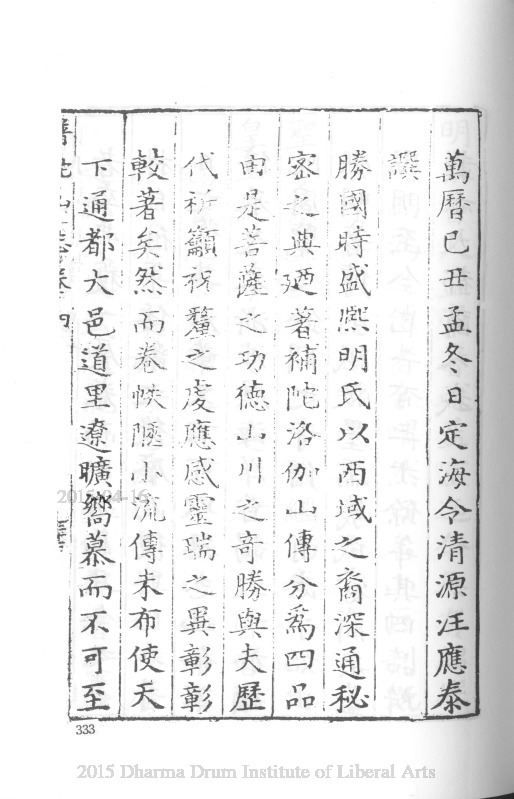 萬曆己丑孟冬日定海令清源汪應泰
譔
勝國時盛熙明氏以西域之裔深通秘
密之典廼著補陀洛伽山傳分爲四品
由是菩薩之功德山川之竒勝與夫歷
代祈籲祝釐之虔應感靈瑞之異彰彰
較著矣然而卷帙隘小流傳未布使天
下通都大邑道里遼曠嚮慕而不可至
普陀山志卷四
333
2015 Dharma Drum Institute of Liberal Arts